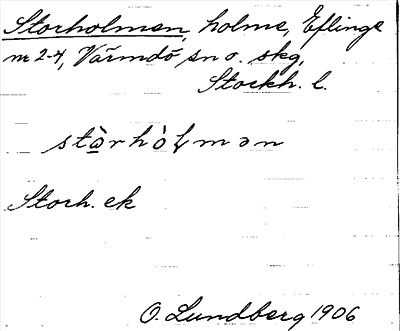 Storholmen, holme, Eflinge
nr 2-4, Värmdö sn o. skg,
Stockh. l.
stòrhòɭmən
Storh. ek
O. Lundberg 1906